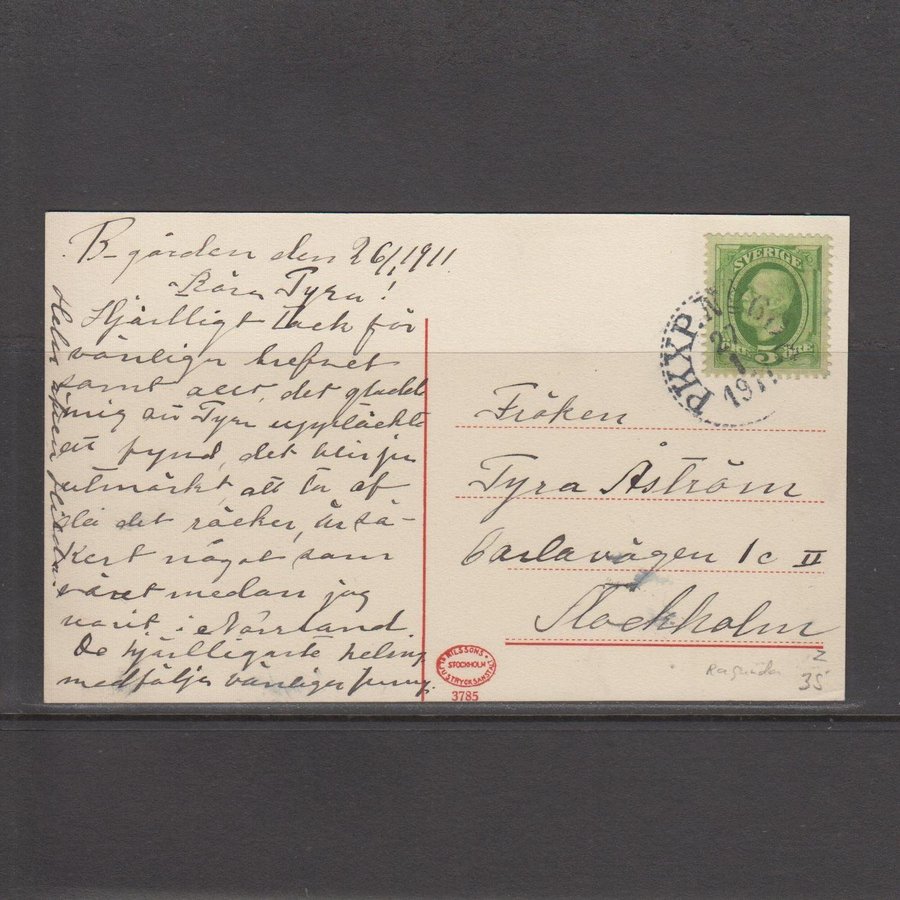 B-gården den 26/1 1911
Kära Tyra!
Hjärtligt tack för
vänliga brefvet
samt allt, det gladde
mig att Tyra upptäckte
ett fynd, det blir ju
utmärkt, att ta af
då det räcker, är sä-
kert något som
varet medan jag
varit i Norrland
De hjärtlegaste helsn
medföljer vänligen
SVERIGE
5
PKXP. N
27
1
1911
Fröken
Tyra Åström
Carlavägen 1c II
Stockholm
NILSSONS
STOCKHOLM
LJUSTRYCKSANSTALT
3785
Ragunda
2
35